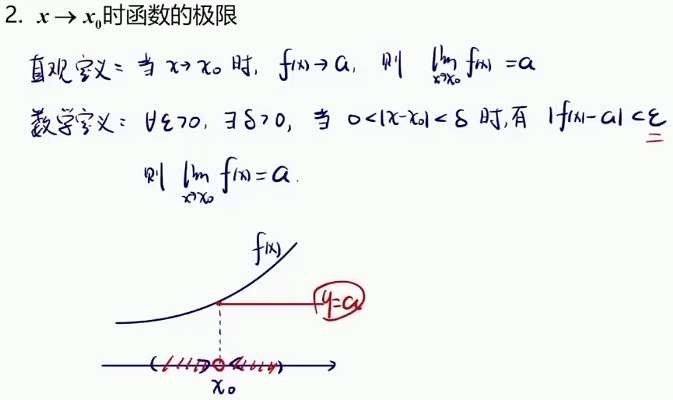 2. x → x₀时函数的极限
直观定义: 当 x→x₀ 时, f(x)→a, 则 lim x→x₀ f(x) = a
数学定义: ∀ε>0, ∃δ>0, 当 0<|x-x₀|<δ 时,有 |f(x)-a|<ε
则 lim x→x₀ f(x) = a.
f(x)
y=a
x₀